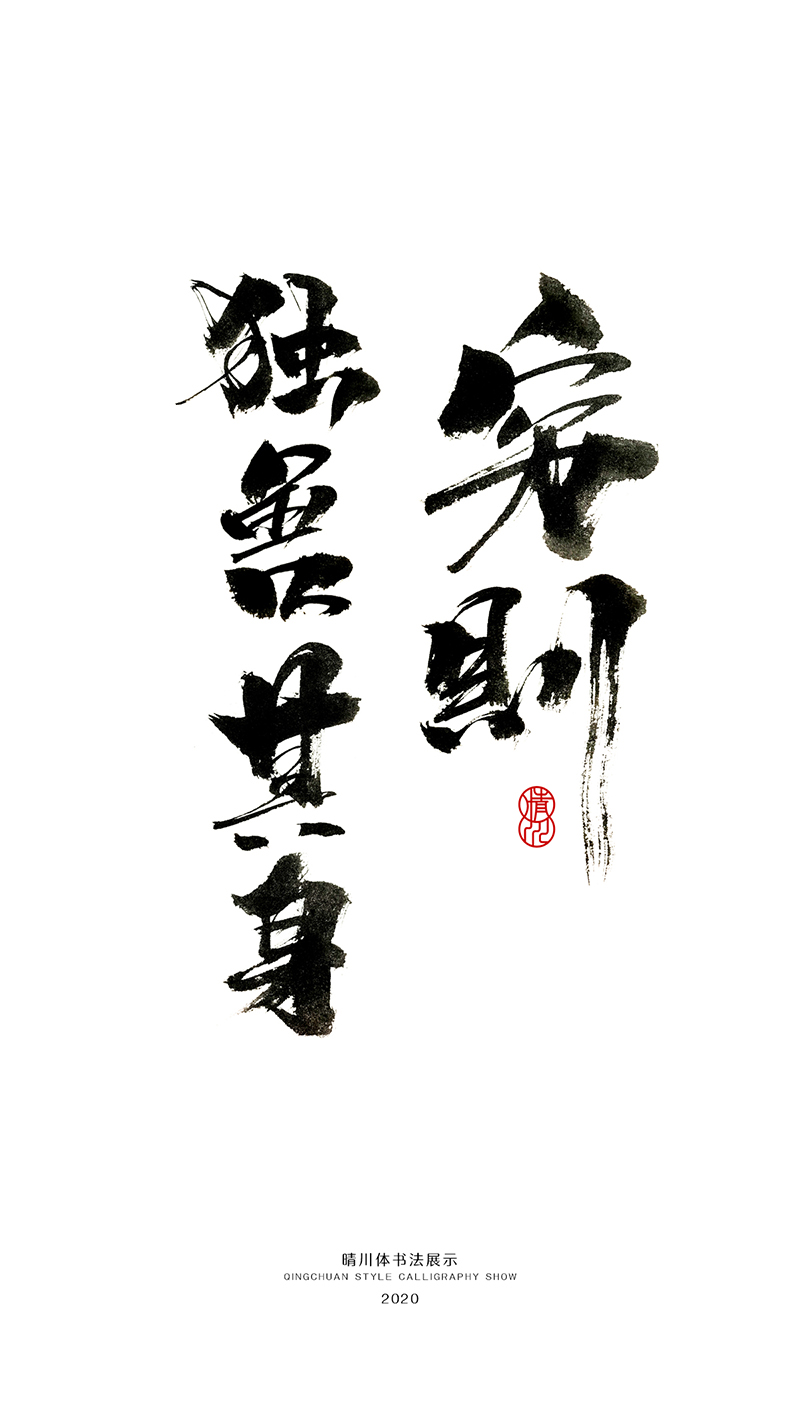 穷則
独善其身
晴川
晴川体书法展示
QINGCHUAN STYLE CALLIGRAPHY SHOW
2020